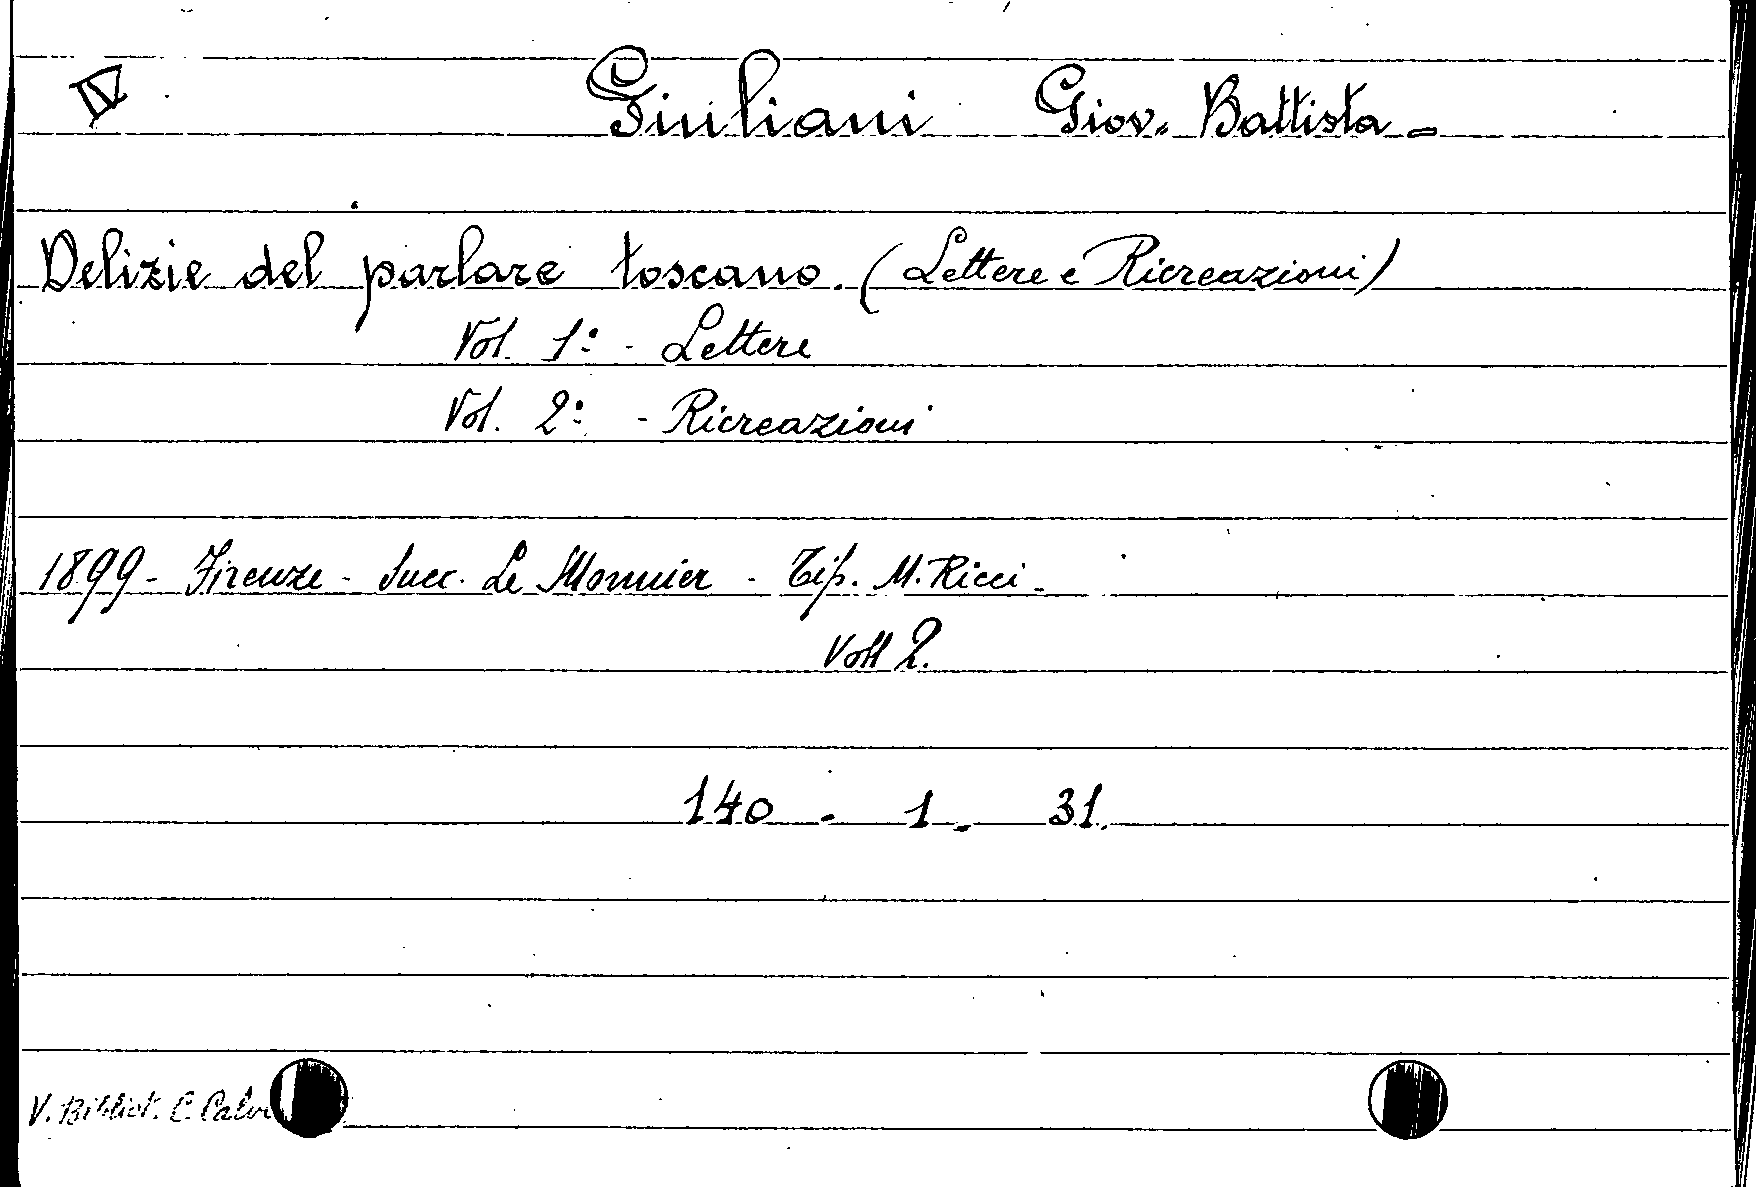 IV
Giuliani Giov. Battista -
Delizie del parlare toscano. (Lettere e Ricreazioni)
Vol. 1: - Lettere
Vol. 2: - Ricreazioni
1899 - Firenze - Succ. Le Monnier - Tip. M. Ricci -
Voll 2.
140 - 1 - 31.
V. Bibliot. C. Calvi